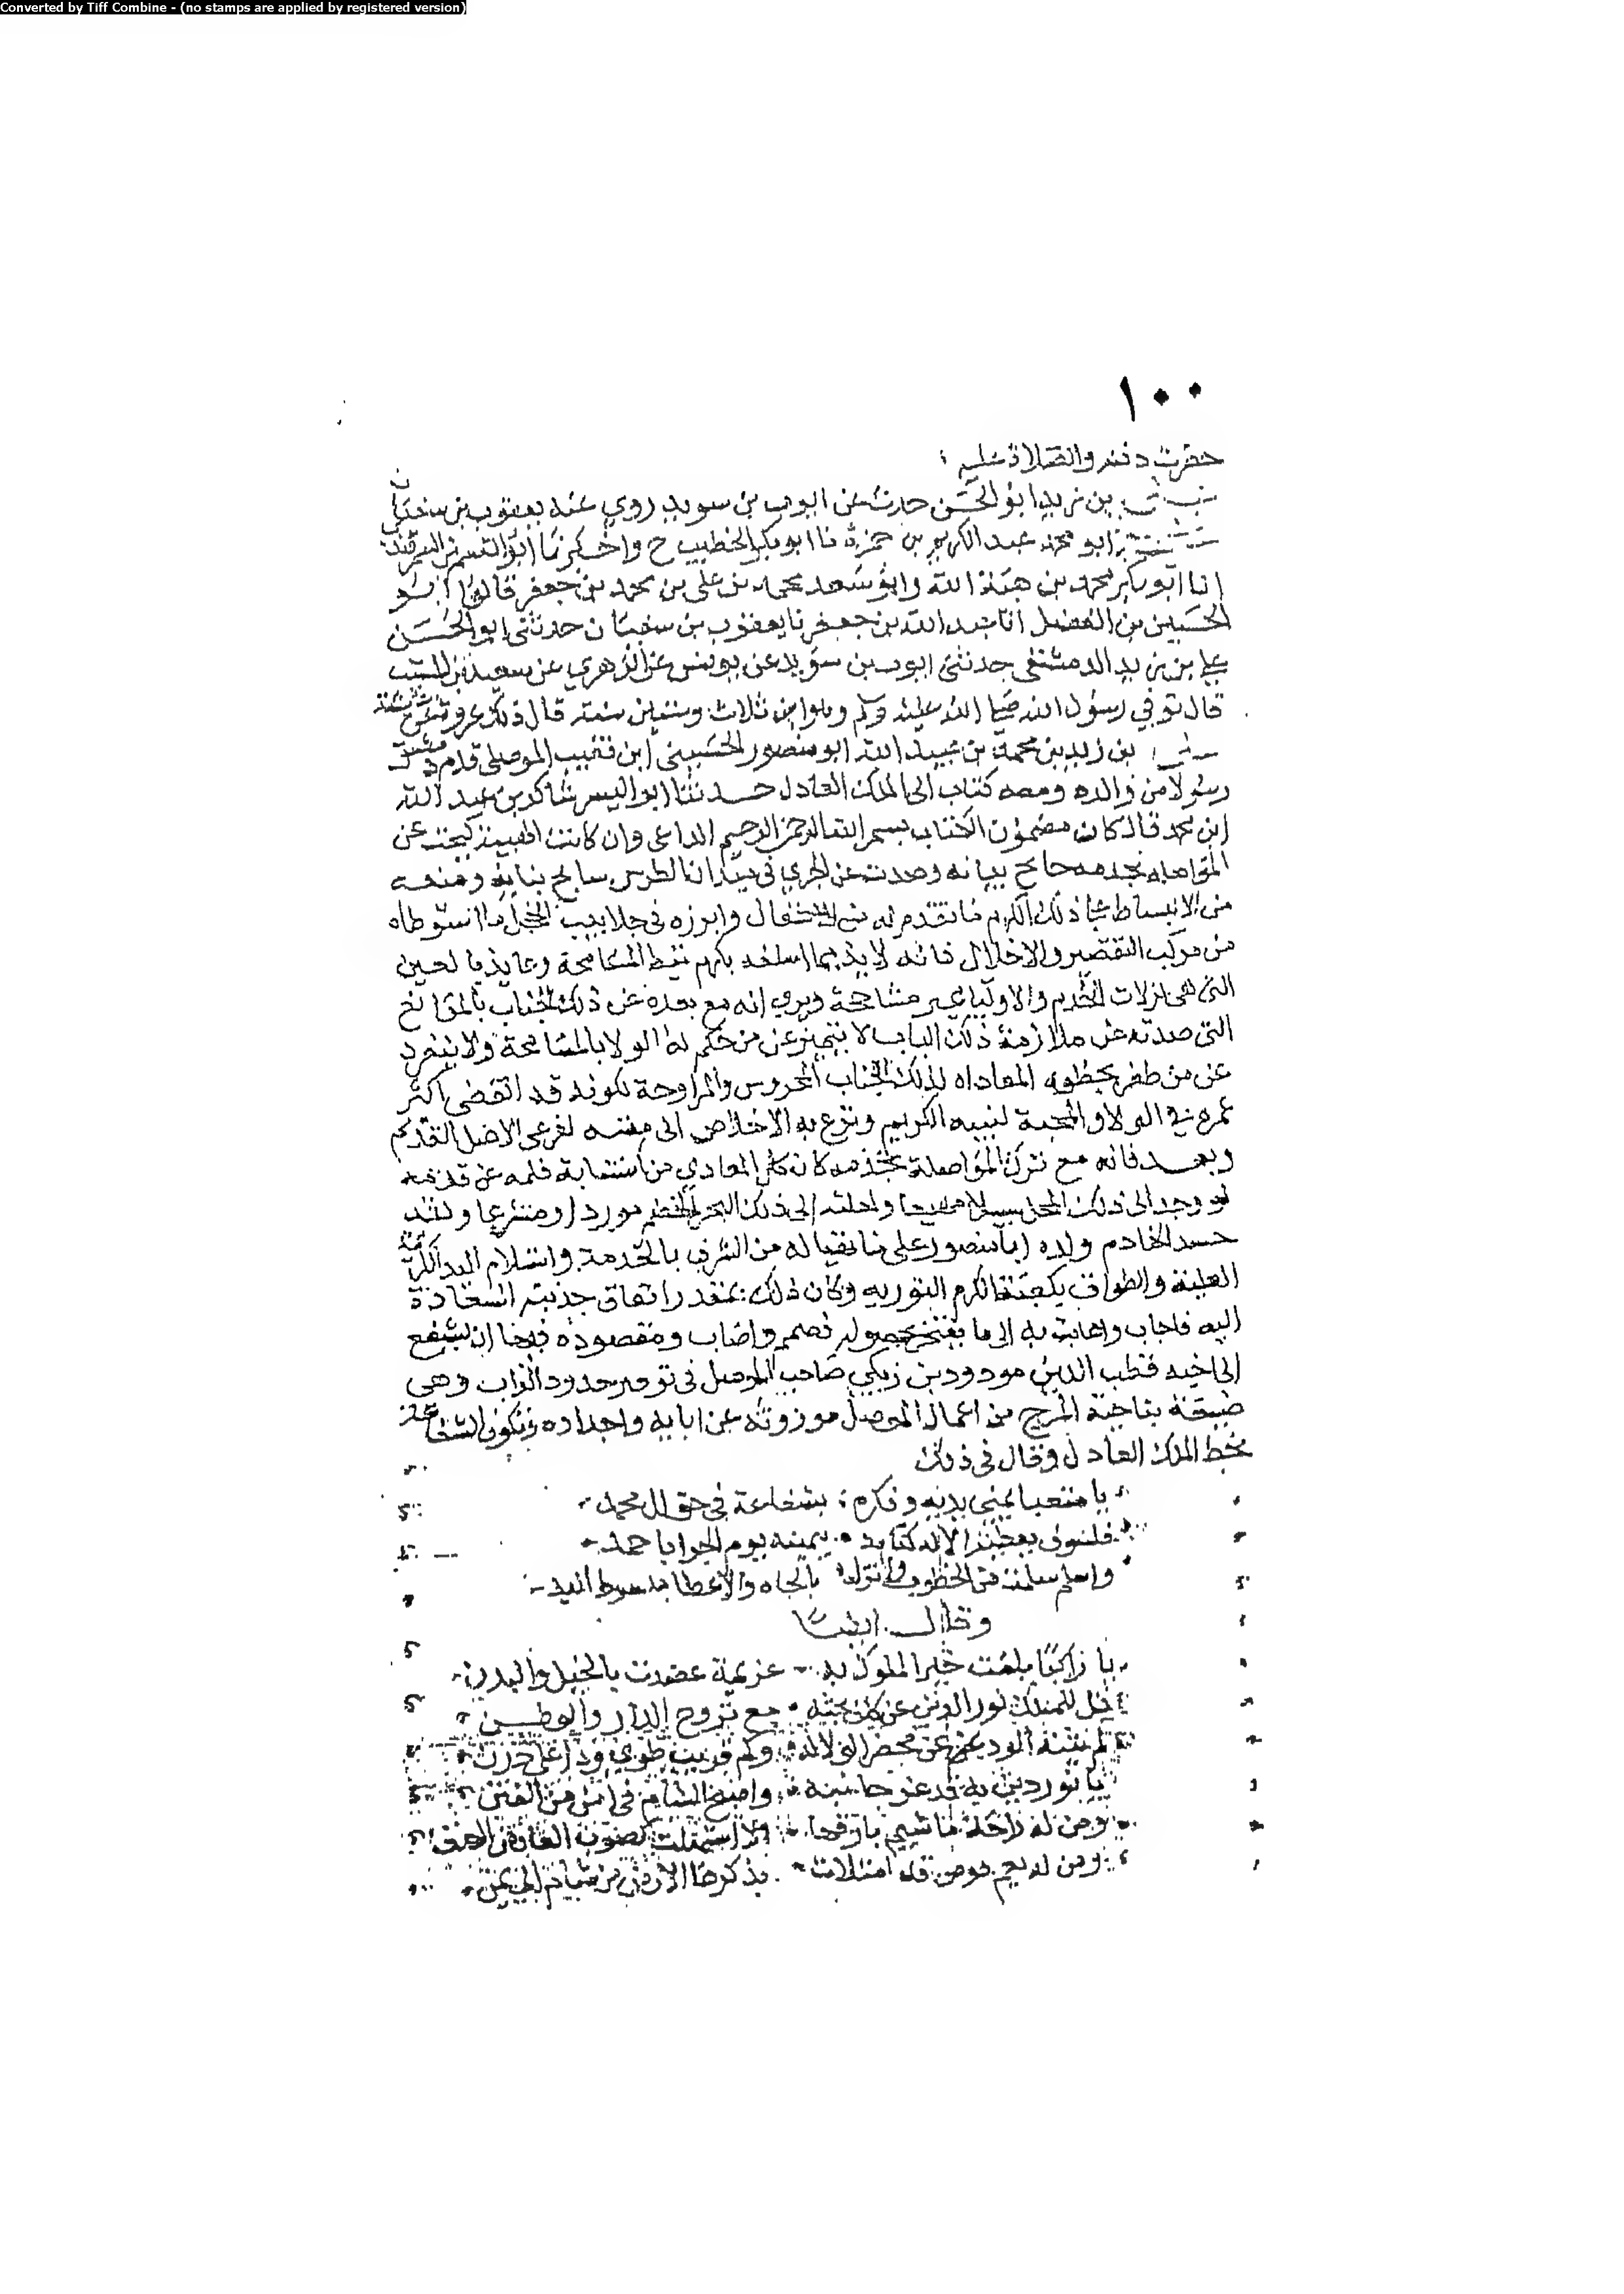 Converted by Tiff Combine - (no stamps are applied by registered version)
١٠٠
حضرت دفنه والصلاة عليه
بن يزيد ابو الحسن حدث عن ايوب بن سويد روي عنه يعقوب بن سفيان
ابو محمد عبد الكريم بن حمزة نا ابو بكر الخطيب ح واخبرنا ابو القسم بن السمرقندي
انا ابو بكر محمد بن هبة الله وابو سعد محمد بن علي بن محمد بن جعفر قالوا انا ابو
الحسين بن الفضل انا عبد الله بن جعفر نا يعقوب بن سفيان حدثني ابو الحسن
علي بن يزيد الدمشقي حدثني ايوب بن سويد عن يونس عن الزهري عن سعيد بن المسيب
قال توفي رسول الله صلى الله عليه وسلم وهو ابن ثلاث وستين سنة قال ذلك عروة عن عائشة
بن زيد بن محمد بن عبيد الله ابو منصور الحسيني ابن نقيب الموصل قدم دمشق
رسولا من والده ومعه كتاب الى الملك العادل حدثنا ابو اليسر شاكر بن عبد الله
ابن محمد قال كان مضمون الكتاب بسم الله الرحمن الرحيم الداعي وان كانت الهيبة كبحت عن
بخدمه جامح بيانه وصدت عن الجري في ميدان الطرس سابح بنانه ومنعه
من الانبساط على ذلك الكرم ما تقدم له من الاغفال وابرزه في جلابيب الخجل ما استوطاه
من مركب التقصير والاخلال فانه لايذ بما اسلفه بكرم تغيط المسامحة وعايذ بالعين
التي هي لزلات الخدم والاوليا غير مشاحة ويري انه مع بعده عن ذلك الجناب بالمقا نح
التي صدته عن ملازمة ذلك الباب لا يتميز عن من حكم له الولا بالمسامحة ولا ينفرد
عن من ظفر بحظوه المغاداه لذلك الجناب المحروس والمراوحة لكونه قد انقضى اكثر
عمره في الولا والمحبة لبيته الكريم ونزع به الاخلاص الى لفرعى الاصل القديم
وبعد فانه مع ترك المواصلة بخدمه كان كل المعادي من استنابة قلمه عن قدمه
لو وجد الى ذلك المحل سبيلا مهيعا واهلته الى ذلك البحر الخضم موردا ومشرعا ولقد
حسد الخادم ولده ابا منصور على ما تهيا له من الشرف بالخدمة واستلام اليد الكريمة
العلية والطواف بكعبة الكرم النورية وكان ذلك بمقدر اتفاق جذبته السعادة
اليه فاجاب واهابت به الى ما يفتخر بحصوله فصمم واصاب ومقصوده فيها ان يشفع
الى اخيه قطب الدين مودود بن زنكي صاحب الموصل في توفير حدود الزاب وهي
ضيعة بناحية المرج من اعمال الموصل موروثة عن ابايه واجداده وتكون الشفاعة
بخط الملك العادل وقال في ذلك
يا متعبا يمنى يديه وفكره بشفاعة في حق ال محمد
فلسوف يعطيك الاله كتابه بيمينه يوم الجزا يا حمد
واسلم سلمت من الخطوب ولا تزل بالجاه والاعطا مبسوط اليد
وقال ايضا
يا راكبا بلغت خير الملوك به عزيمة عضدت بالخيل والبدن
قل للملك نور الدين عن كلف بحبه مع نزوح الدار والوطن
لم يثنه الود عن محض الولا له وكم قريب طوي ودا على درن
يا نور دين به قد عز جانبه واصبح الشام في امن من الفتن
ومن له راحة ما شيم بارقها الا استهلت كصوب العارض الهتن
ومن له بذكرها الارض من شام الى يمن